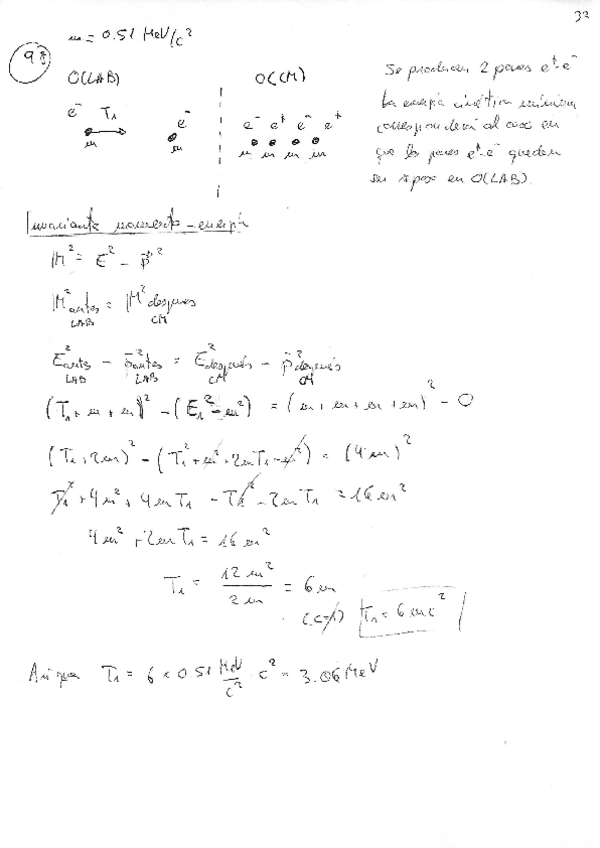 32
m = 0.51 MeV/c²
98
O(LAB)
O(CM)
e⁻ T₁ e⁻
m m
e⁻ e⁺ e⁻ e⁺
m m m m
Se producen 2 pares e⁺-e⁻
La energía cinética mínima
corresponderá al caso en
que los pares e⁺-e⁻ queden
en reposo en O(LAB).
Invariante momento-energía
M² = E² - p²
M²antes LAB = M²después CM
E²antes LAB - p²antes LAB = E²después CM - p²después CM
(T₁ + m + m)² - (E₁² - m²) = (m + m + m + m)² - 0
(T₁ + 2m)² - (T₁² + m² + 2mT₁ - m²) = (4m)²
T₁² + 4m² + 4mT₁ - T₁² - 2mT₁ = 16m²
4m² + 2mT₁ = 16m²
T₁ = 12m² / 2m = 6m
(c=1) T₁ = 6mc²
Así que T₁ = 6 × 0.51 MeV/c² · c² = 3.06 MeV